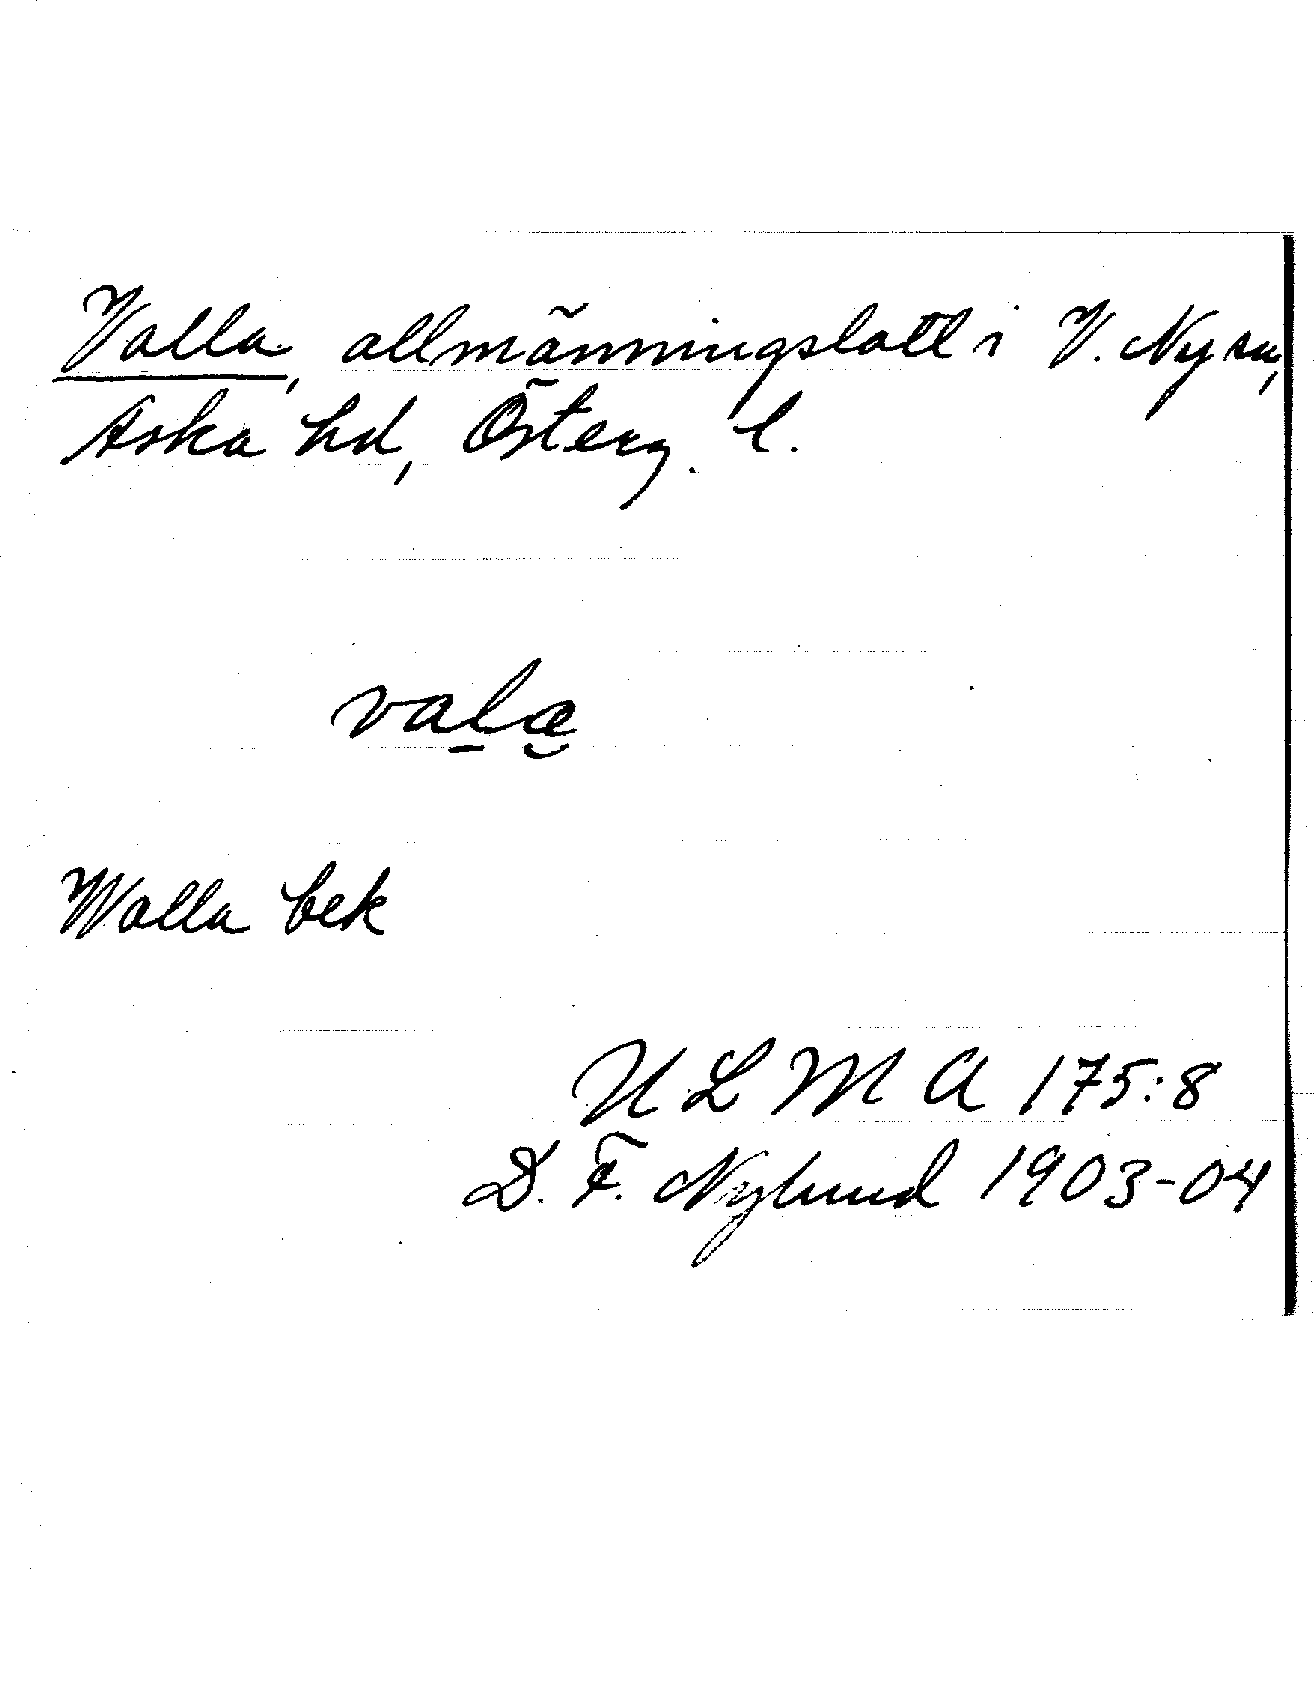 Valla, allmänningslott i V. Ny sn,
Aska hd, Österg. l.
valæ
Walla bek
ULMA 175:8
D. F. Nylund 1903-04